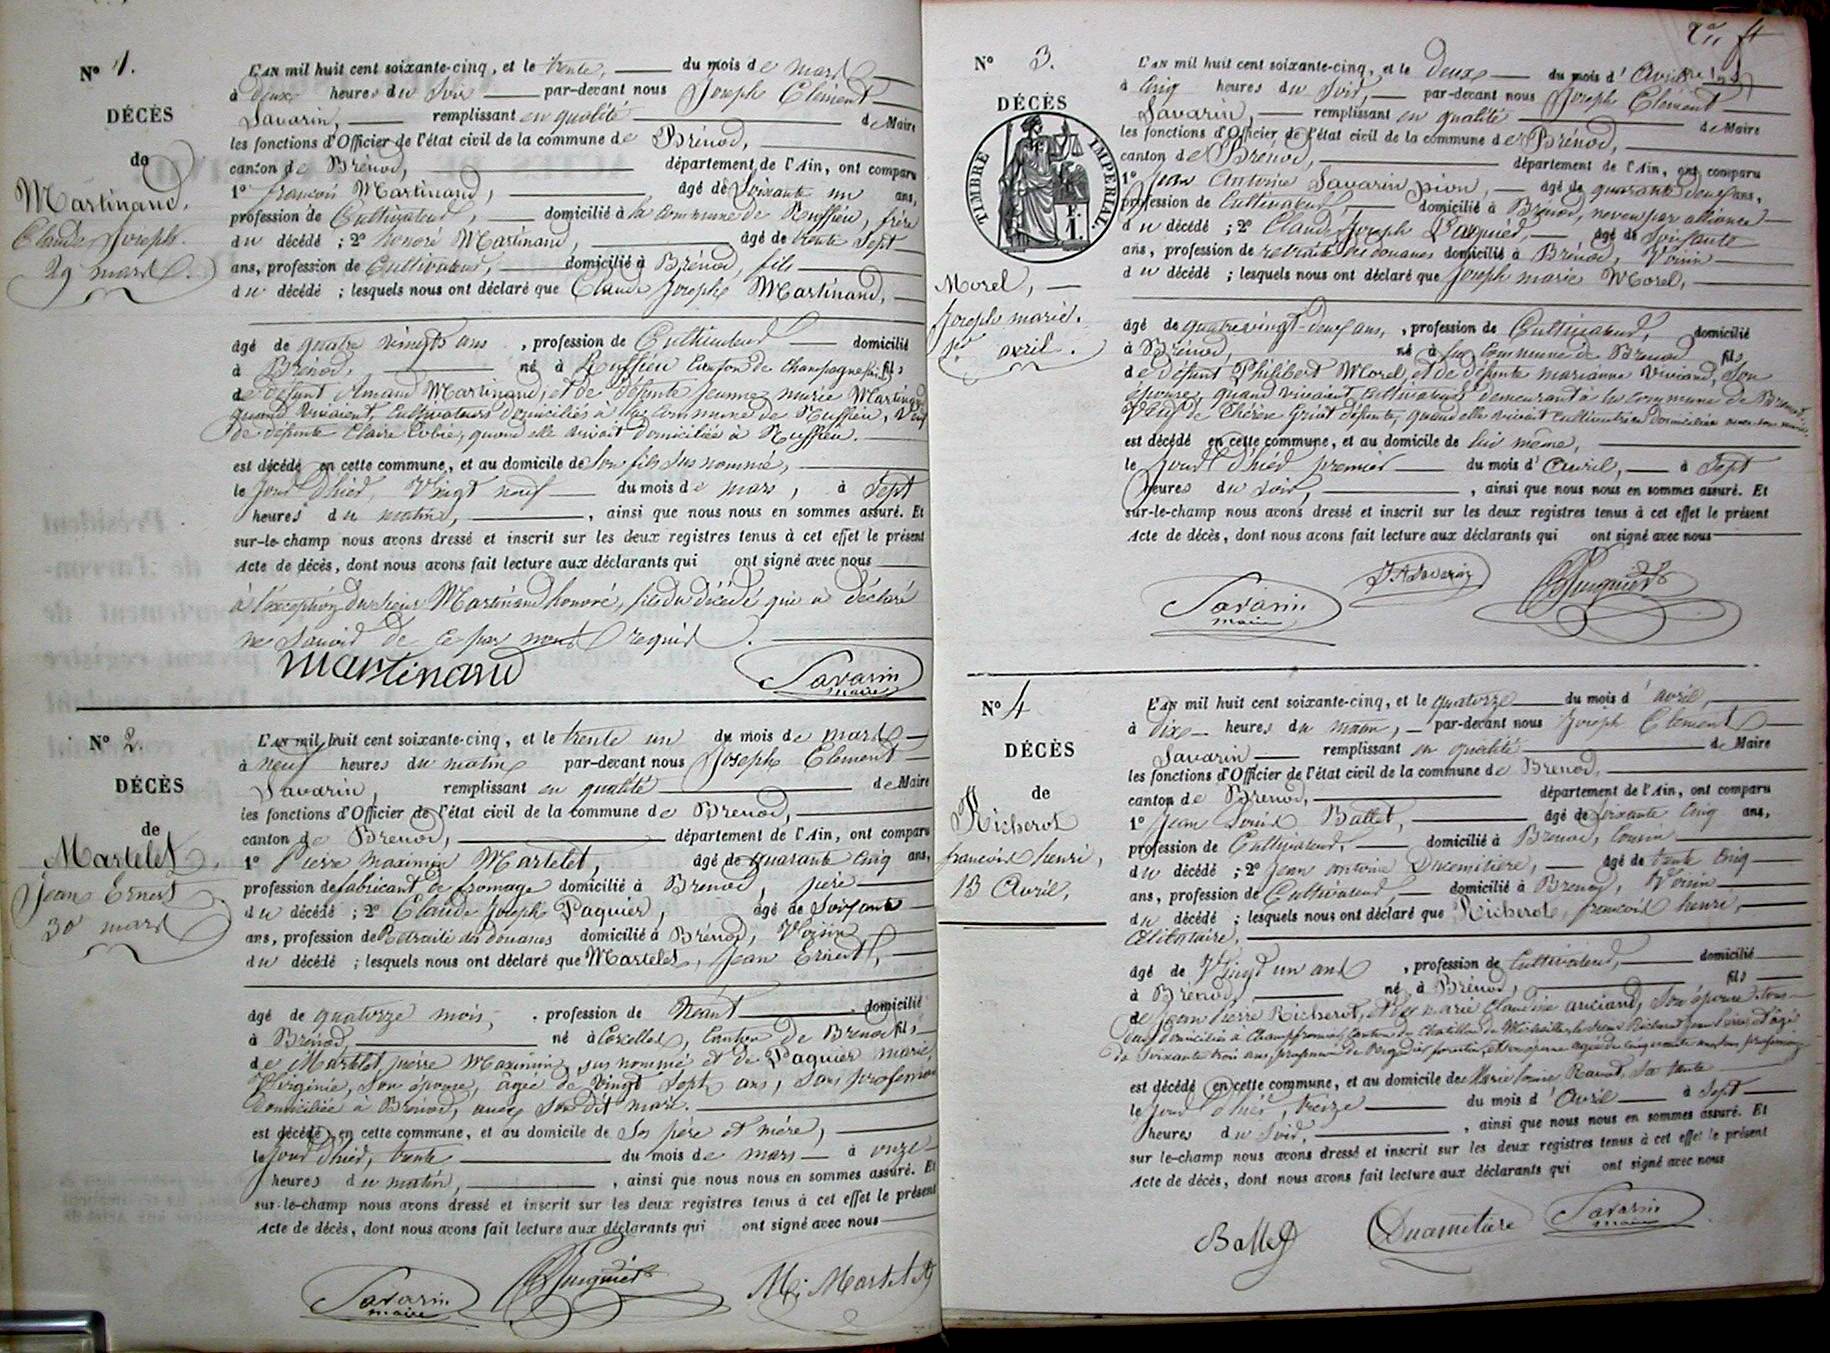 N° 1.
DÉCÈS
de
Martinand,
Claude Joseph.
29 mars
L'AN mil huit cent soixante-cinq, et le trente, du mois de mars
à deux heures du soir par-devant nous Joseph Clément
Savarin, remplissant en qualité de Maire
les fonctions d'Officier de l'état civil de la commune de Brénod,
canton de Brénod, département de l'Ain, ont comparu
1° françois Martinand, âgé de soixante un ans,
profession de Cultivateur, domicilié à la commune de Ruffieu, frère
du décédé ; 2° honoré Martinand, âgé de trente sept
ans, profession de Cultivateur, domicilié à Brénod, fils
du décédé ; lesquels nous ont déclaré que Claude Joseph Martinand,
âgé de quatre vingts ans, profession de Cultivateur domicilié
à Brénod, né à Ruffieu Canton de Champagne fils
de défunt Amand Martinand, et de défunte Jeanne marie Martinand
quand vivaient cultivateurs domiciliés à la commune de Ruffieu, Veuf
de défunte Claire quand elle vivait domiciliée à Ruffieu.
est décédé en cette commune, et au domicile de son fils sus nommé,
le jour d'hier, Vingt neuf du mois de mars, à Sept
heures du matin, ainsi que nous nous en sommes assuré. Et
sur-le-champ nous avons dressé et inscrit sur les deux registres tenus à cet effet le présent
Acte de décès, dont nous avons fait lecture aux déclarants qui ont signé avec nous
à l'exception du sieur Martinand honoré, fils du décédé qui a déclaré
ne savoir de ce par nous requis.
Martinand
Savarin
maire
N° 2.
DÉCÈS
de
Martelet,
Jean Ernest
30 mars
L'AN mil huit cent soixante-cinq, et le trente un du mois de mars
à neuf heures du matin par-devant nous Joseph Clement
Savarin, remplissant en qualité de Maire
les fonctions d'Officier de l'état civil de la commune de Brenod,
canton de Brenod, département de l'Ain, ont comparu
1° Pierre maximin Martelet, âgé de quarante cinq ans,
profession de fabricant de fromage domicilié à Brenod, père
du décédé ; 2° Claude Joseph Paquier, âgé de Soixante
ans, profession de Retraité des douanes domicilié à Brénod, Voisin
du décédé ; lesquels nous ont déclaré que Martelet, Jean Ernest,
âgé de quatorze mois, profession de Néant domicilié
à Brénod, né à Corcelles, Canton de Brenod fils
de Martelet pierre Maximin, sus nommé et de Paquier marie
Virginie, son épouse, âgée de vingt sept ans, sans profession
domiciliée à Brénod, avec son dit mari.
est décédé en cette commune, et au domicile de Ses père et mère,
le jour d'hier, trente du mois de mars à onze
heures du matin, ainsi que nous nous en sommes assuré. Et
sur-le-champ nous avons dressé et inscrit sur les deux registres tenus à cet effet le présent
Acte de décès, dont nous avons fait lecture aux déclarants qui ont signé avec nous
Savarin
maire
M. Martelet
N° 3.
DÉCÈS
TIMBRE IMPÉRIAL.
Morel,
Joseph marie.
1er avril.
L'AN mil huit cent soixante-cinq, et le deux du mois d'Avril
à Cinq heures du Soir, par-devant nous Joseph Clément
Savarin, remplissant en qualité de Maire
les fonctions d'Officier de l'état civil de la commune de Brénod,
canton de Brénod, département de l'Ain, ont comparu
1° Jean Antoine Savarin pion, âgé de quarante deux ans,
profession de Cultivateur, domicilié à Brénod, neveu par alliance
du décédé ; 2° Claude Joseph Paquier, âgé de Soixante
ans, profession de retraité des douanes domicilié à Brénod, Voisin
du décédé ; lesquels nous ont déclaré que Joseph marie Morel,
âgé de quatre vingt deux ans, profession de Cultivateur, domicilié
à Brénod, né à la commune de Brenod fils
de défunt Philibert Morel, et de défunte marianne Viviand, Son
épouse, quand vivaient cultivateurs demeurant à la commune de Brenod.
Veuf de Thérèse défunte, quand elle vivait cultivatrice domiciliée avec son mari.
est décédé en cette commune, et au domicile de lui même,
le jour d'hier premier du mois d'Avril, à Sept
heures du soir, ainsi que nous nous en sommes assuré. Et
sur-le-champ nous avons dressé et inscrit sur les deux registres tenus à cet effet le présent
Acte de décès, dont nous avons fait lecture aux déclarants qui ont signé avec nous
Savarin
maire
N° 4
DÉCÈS
de
Richerot
francois henri,
13 Avril,
L'AN mil huit cent soixante-cinq, et le quatorze du mois d'avril,
à dix heures du matin, par-devant nous Joseph Clement
Savarin remplissant en qualité de Maire
les fonctions d'Officier de l'état civil de la commune de Brenod,
canton de Brenod, département de l'Ain, ont comparu
1° Jean Louis Ballet, âgé de soixante cinq ans,
profession de Cultivateur, domicilié à Brenod, cousin
du décédé ; 2° Jean antoine Ducmitière, âgé de trente cinq
ans, profession de Cultivateur, domicilié à Brenod, Voisin
du décédé ; lesquels nous ont déclaré que Richerot, francois henri,
Célibataire,
âgé de Vingt un ans, profession de Cultivateur, domicilié
à Brenod, né à Brénod, fils
de Jean Pierre Richerot, et de marie Claudine anciand, Son épouse, tous
deux domiciliés à Champfromier, Canton de Chatillon de Michaille, le sieur Richerot Jean Pierre, âgé
de soixante trois ans, profession de forestier, et son épouse agée de cinquante ans sans profession
est décédé en cette commune, et au domicile de Marie Louise Ravot, sa tante
le jour d'hier, treize du mois d'Avril à Sept
heures du Soir, ainsi que nous nous en sommes assuré. Et
sur le-champ nous avons dressé et inscrit sur les deux registres tenus à cet effet le présent
Acte de décès, dont nous avons fait lecture aux déclarants qui ont signé avec nous
Ballet
Savarin
maire